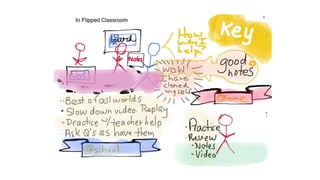 In Flipped Classroom
Board
Notes
How
can I
help?
Key
good
notes
WOW!
I have
cloned
myself
Work
Home
· Best of all worlds
• Slow down video. Replay
- Practice w/ teacher help
- Ask Q's as have them
@school
• Practice
Review
- Notes
- Video